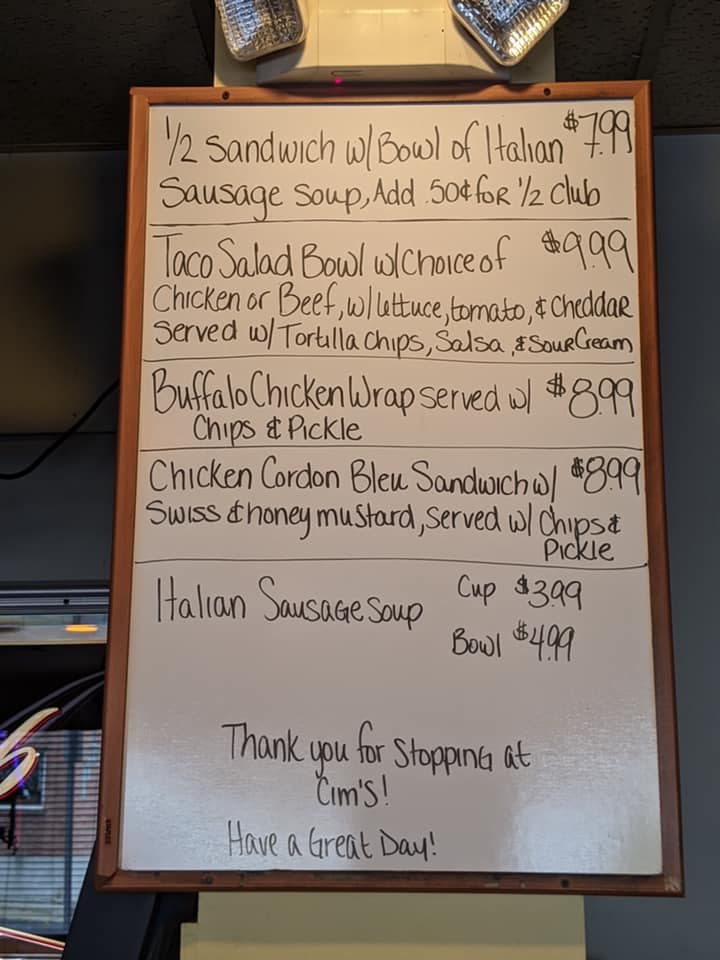 1/2 Sandwich w/ Bowl of Italian $7.99
Sausage Soup, Add .50¢ for 1/2 Club
Taco Salad Bowl w/ Choice of $9.99
Chicken or Beef, w/ lettuce, tomato, & Cheddar
Served w/ Tortilla Chips, Salsa, & Sour Cream
Buffalo Chicken Wrap served w/ $8.99
Chips & Pickle
Chicken Cordon Bleu Sandwich w/ $8.99
Swiss & honey mustard, served w/ Chips &
Pickle
Italian Sausage Soup Cup $3.99
Bowl $4.99
Thank you for Stopping at
Cim's!
Have a Great Day!